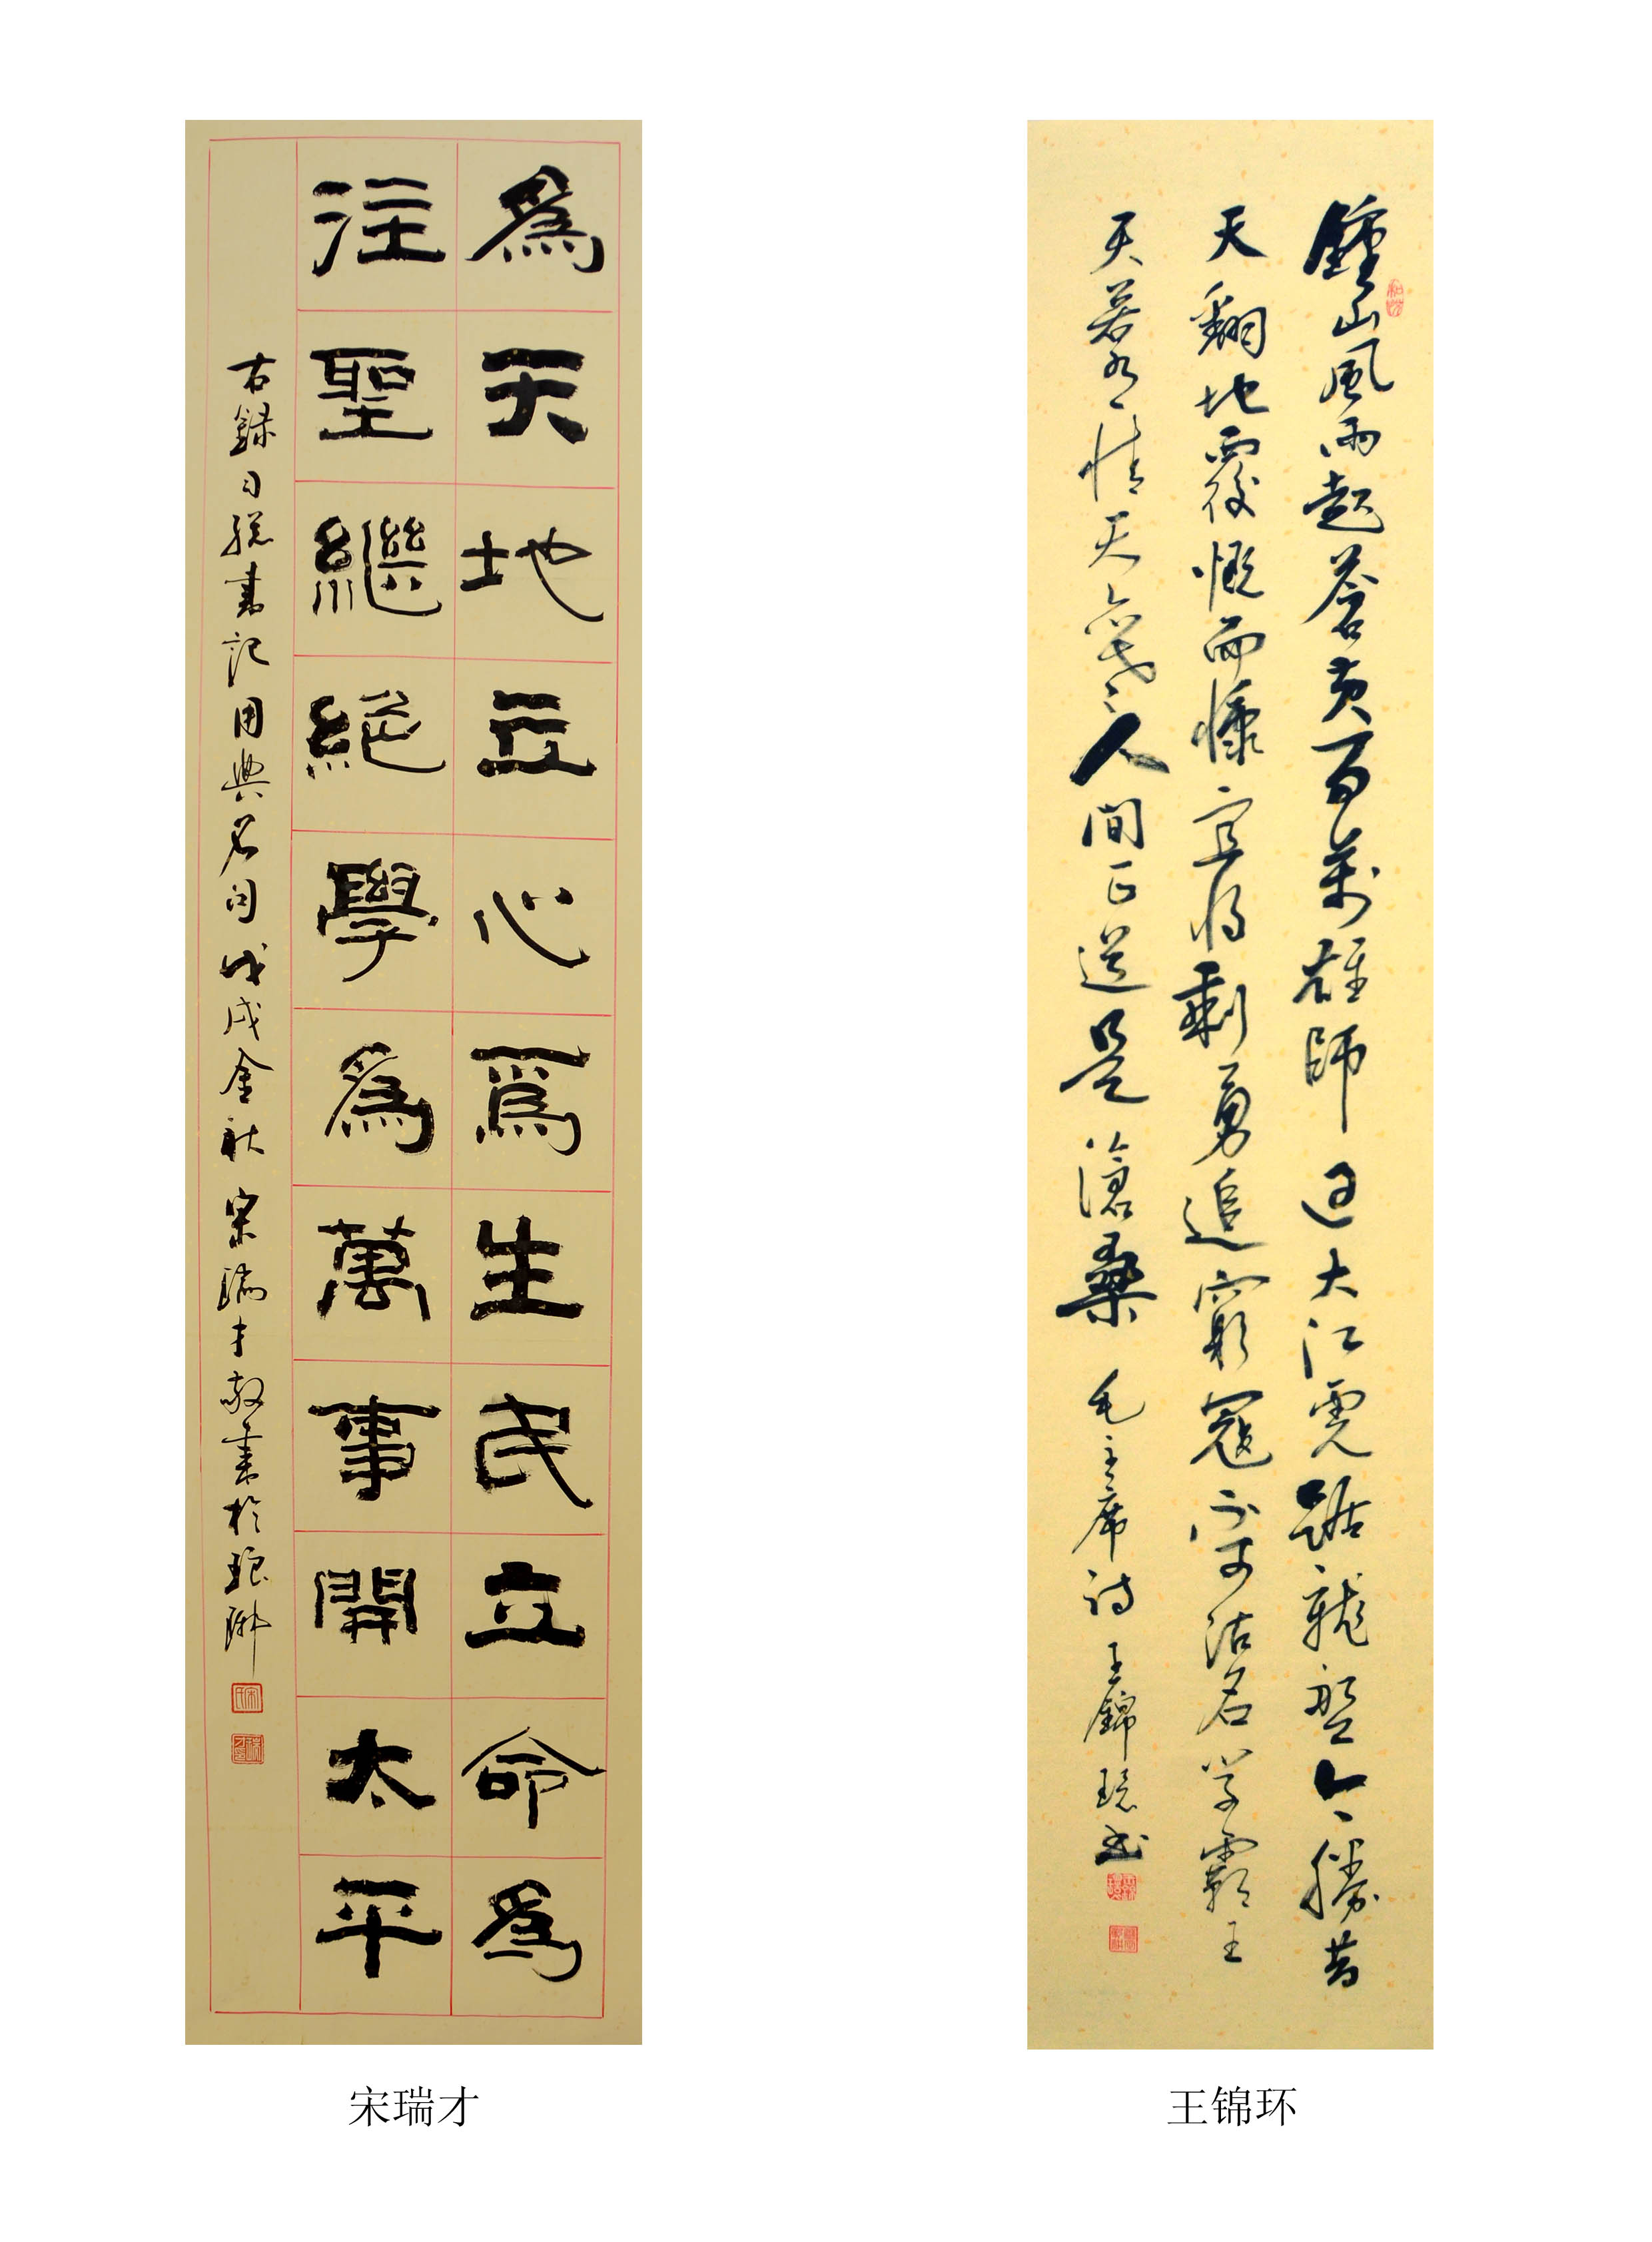 為天地立心爲生民立命為
注聖繼絕學為萬事開太平
右録习總書記用典名句戊戌金秋 宋瑞才敬書於琅琊
宋瑞才
鍾山風雨起蒼黄百萬雄師过大江虎踞龍盤今勝昔
天翻地覆慨而慷宜将剩勇追窮寇不可沽名学霸王
天若有情天亦老人間正道是滄桑 毛主席诗 王錦環书
王锦环